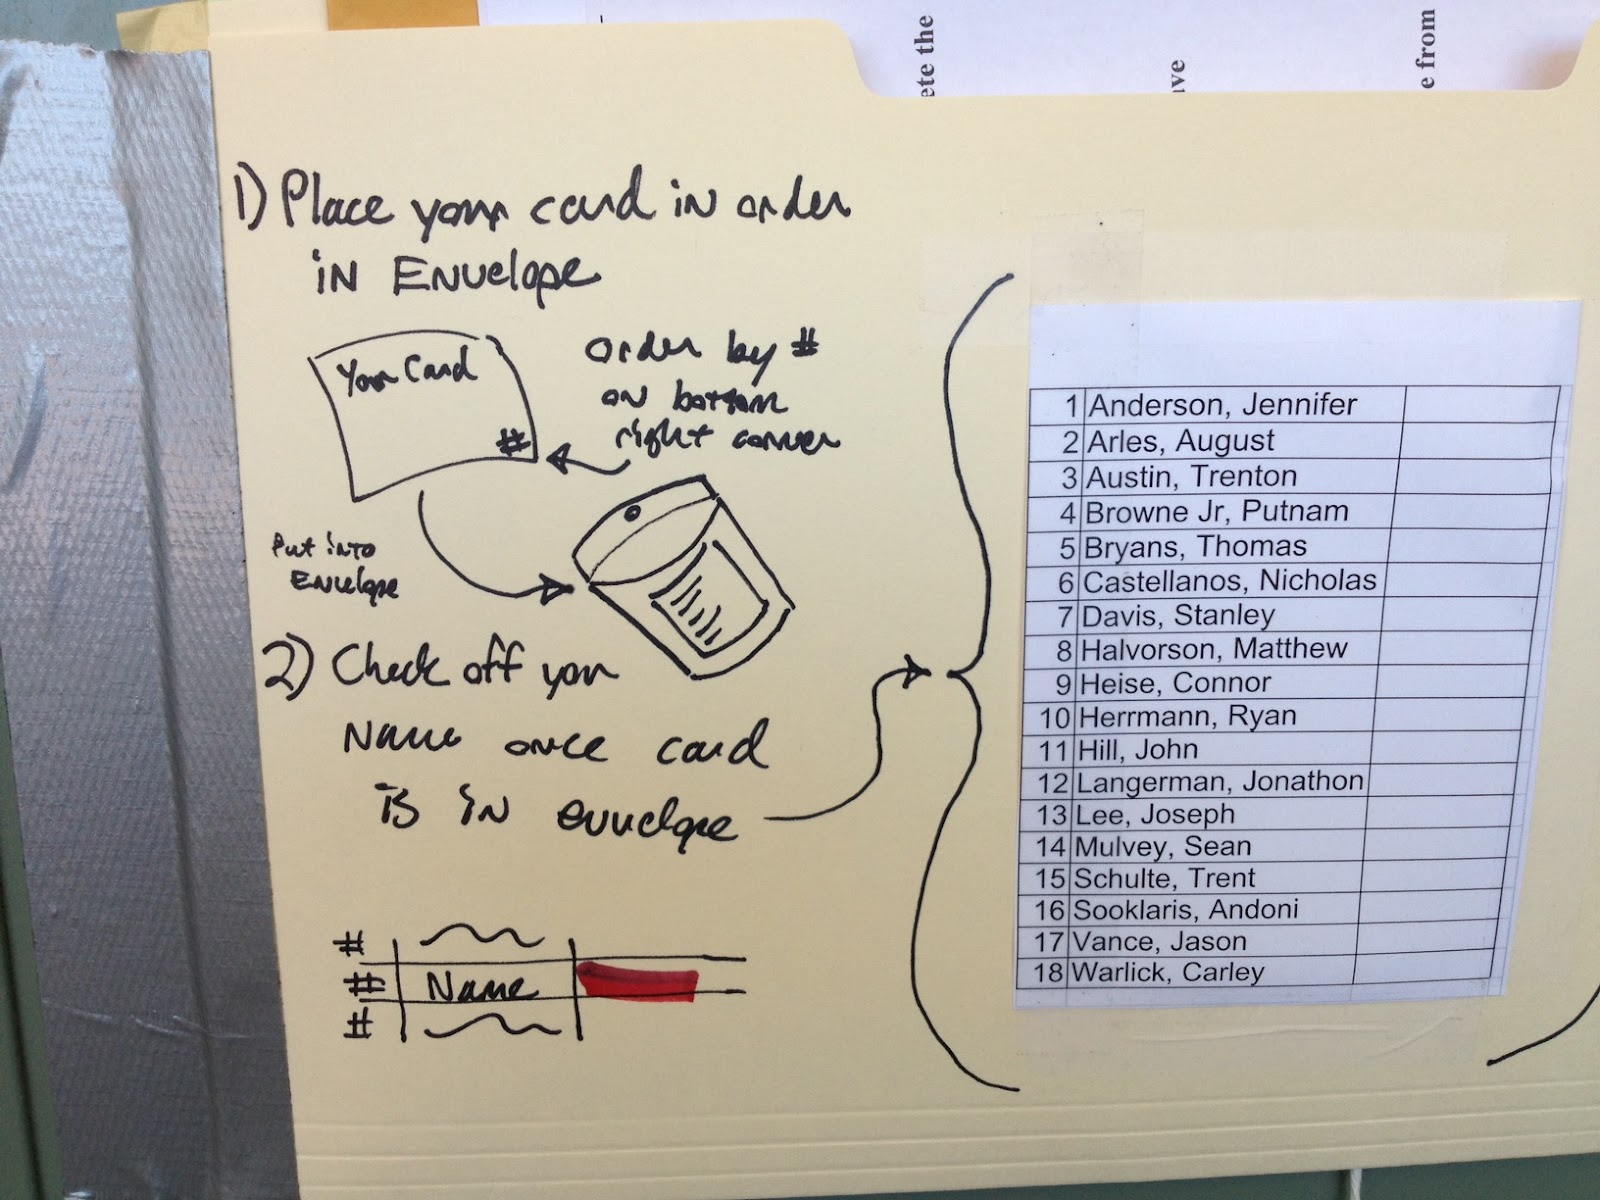 ete the
ve
e from
1) Place your card in order
in Envelope
Your Card
#
order by #
on bottom
right corner
Put into
Envelope
2) Check off your
Name once card
is in envelope
#
# Name
#
1 Anderson, Jennifer
2 Arles, August
3 Austin, Trenton
4 Browne Jr, Putnam
5 Bryans, Thomas
6 Castellanos, Nicholas
7 Davis, Stanley
8 Halvorson, Matthew
9 Heise, Connor
10 Herrmann, Ryan
11 Hill, John
12 Langerman, Jonathon
13 Lee, Joseph
14 Mulvey, Sean
15 Schulte, Trent
16 Sooklaris, Andoni
17 Vance, Jason
18 Warlick, Carley